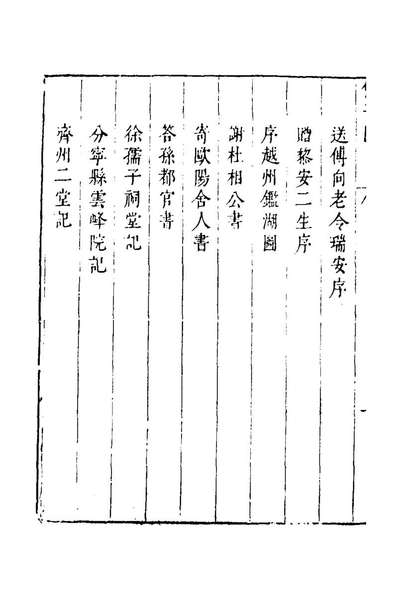 送傅向老令瑞安序
贈黎安二生序
序越州鑑湖圖
謝杜相公書
寄歐陽舍人書
答孫都官書
徐孺子祠堂記
分寧縣雲峰院記
齊州二堂記